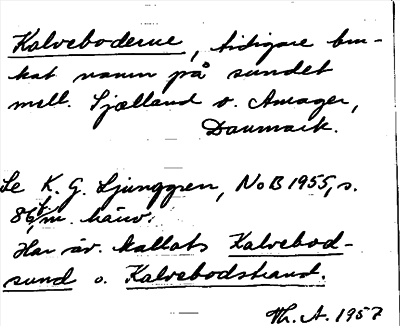 Kalveboderne, tidigare bru-
kat namn på sundet
mell. Sjælland o. Amager,
Danmark.
Se K. G. Ljunggren, NoB 1955, s.
86 f. m. hänv.
Har äv. kallats Kalvebod-
sund o. Kalvebodstrand.
Th. A. 1957